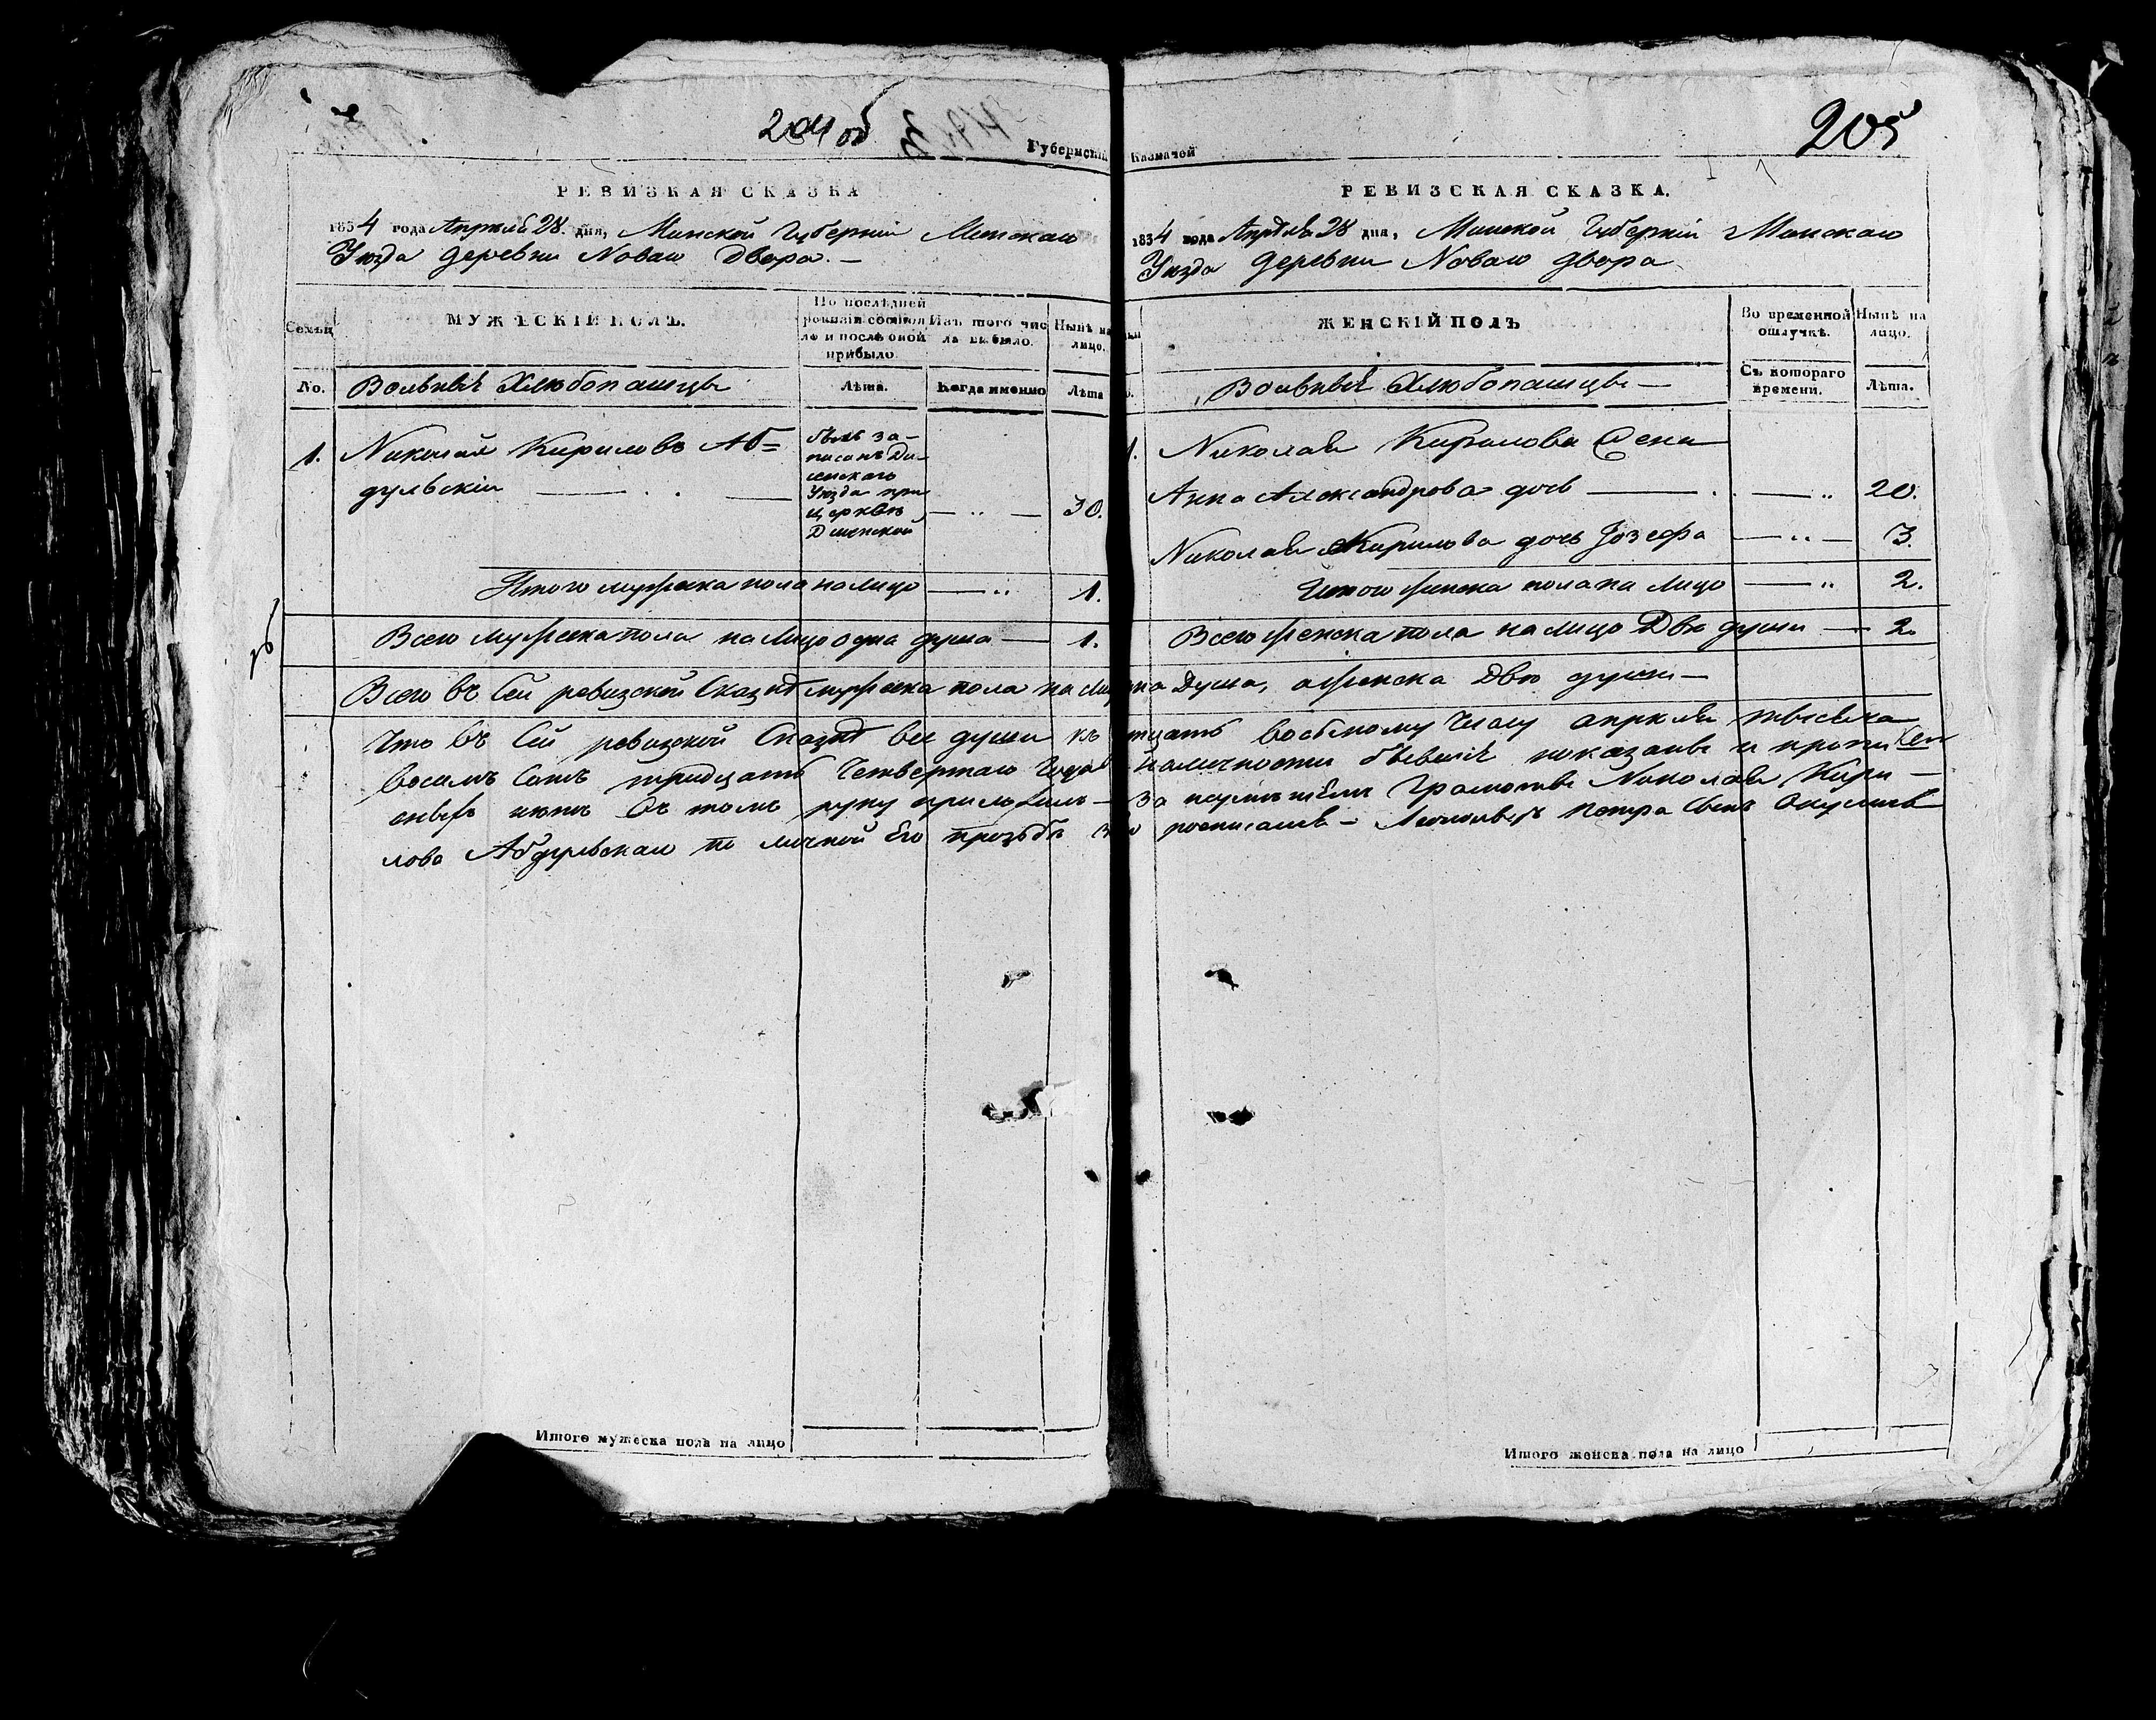 204 об
Губернскій
РЕВИЗКАЯ СКАЗКА
1834 года Апрѣля 28. дня, Минской Губерніи Минскаго
Уѣзда деревни Новаго Двора. —
Семьи
МУЖЕСКІЙ ПОЛЪ.
По послѣдней
ревизіи состоял
ло и послѣ оной
прибыло
Изъ того чис
ла выбыло.
Нынѣ на
лицо.
No.
Вольныѣ Хлѣбопашцы
Лѣта.
Когда именно
Лѣта
1. Николай Кириловъ Аб=
дульскій
былъ за-
писанъ Ди-
сенскаго
Уѣзда при
церквѣ
Дисенской
30.
Итого мужеска пола на лицо 1.
Всего мужеска пола на лицо одна душа — 1.
Всего въ сей ревизской Сказкѣ мужеска пола на ли
Что въ сей ревизской Сказкѣ все души къ
восемъ сотъ тридцать четвертаго года
нѣтъ въ томъ руку приложилъ —
лова Абдульскаго по личной его прозьбѣ
205
Казначей
РЕВИЗСКАЯ СКАЗКА.
1834 года Апрѣля 28 дня, Минской Губерніи Минскаго
Уѣзда деревни Новаго двора
ЖЕНСКІЙ ПОЛЪ
Во временной
отлучкѣ.
Нынѣ на
лицо.
Вольныѣ Хлѣбопашцы —
Съ котораго
времени.
Лѣта.
1. Николая Кирилова Жена
Анна Александрова дочь 20.
Николая Кирилова дочь Іозефа 3.
Итого женска пола на лицо 2.
Всего женска пола на лицо Двѣ души — 2.
Душа, а женска Двѣ души —
восьмому числу апрѣля тысеча
наличности бывшіѣ показаны и пропи
за неумѣніемъ Грамоты Николая Кири —
росписался — Петра сынъ
Итого мужеска пола на лицо
Итого женска пола на лицо